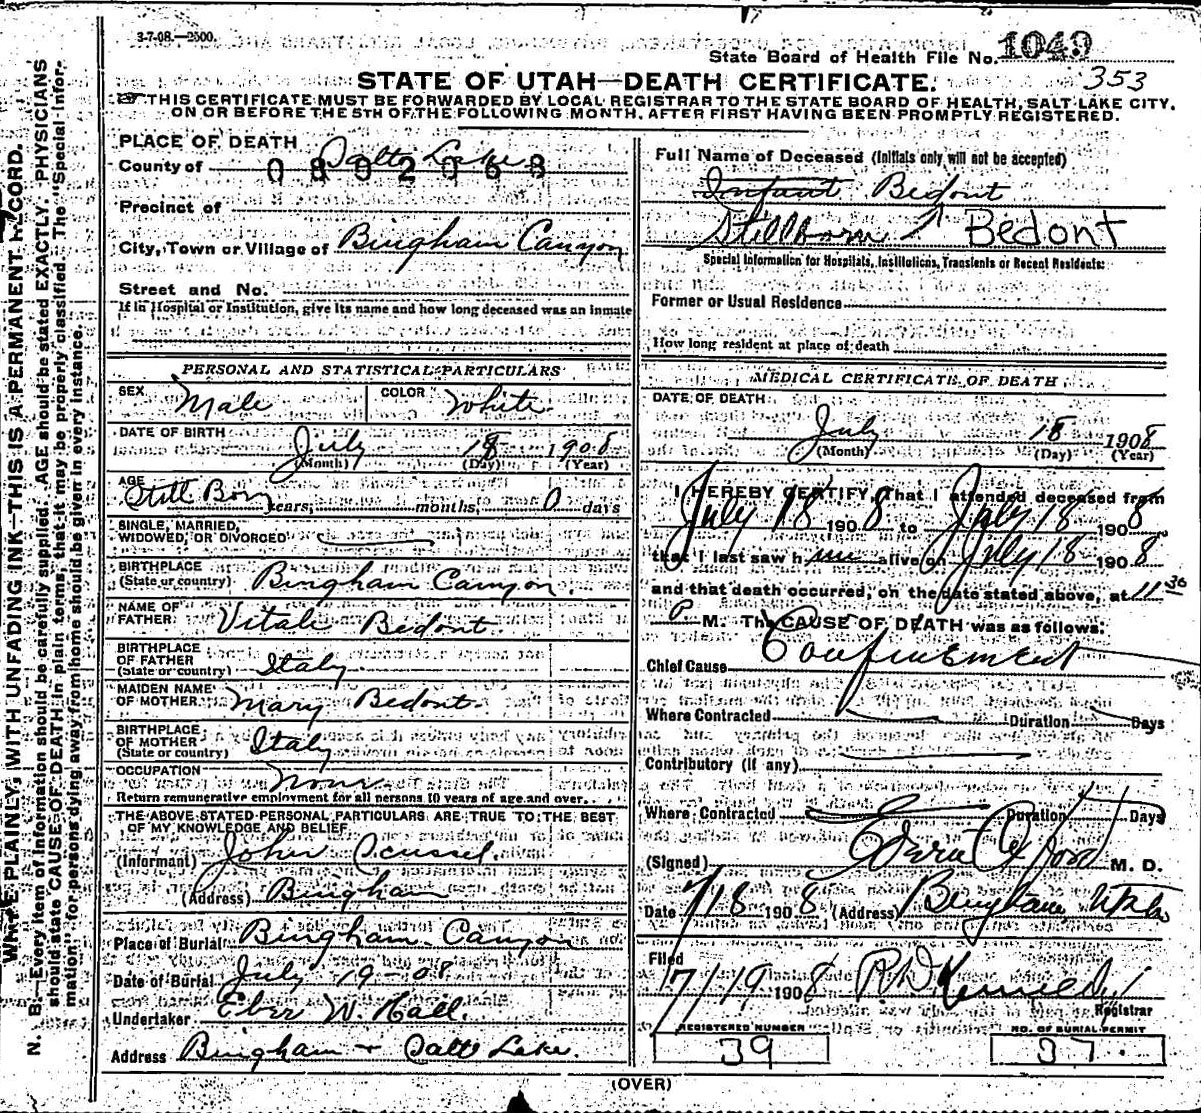 3-7-08.—2500.
State Board of Health File No. 1049
353
STATE OF UTAH—DEATH CERTIFICATE.
THIS CERTIFICATE MUST BE FORWARDED BY LOCAL REGISTRAR TO THE STATE BOARD OF HEALTH, SALT LAKE CITY,
ON OR BEFORE THE 5TH OF THE FOLLOWING MONTH, AFTER FIRST HAVING BEEN PROMPTLY REGISTERED.
N. B.—Every item of information should be carefully supplied. AGE should be stated EXACTLY. PHYSICIANS
should state CAUSE OF DEATH in plain terms, that it may be properly classified. The "Special Infor-
mation" for persons dying away from home should be given in every instance.
WRITE PLAINLY, WITH UNFADING INK—THIS IS A PERMANENT RECORD.
PLACE OF DEATH
County of Salt Lake
0802068
Precinct of
City, Town or Village of Bingham Canyon
Street and No.
If in Hospital or Institution, give its name and how long deceased was an inmate
Full Name of Deceased (Initials only will not be accepted)
Infant Bedont
Stillborn Bedont
Special Information for Hospitals, Institutions, Transients or Recent Residents:
Former or Usual Residence
How long resident at place of death
PERSONAL AND STATISTICAL PARTICULARS
SEX Male COLOR White
DATE OF BIRTH July 18 1908
(Month) (Day) (Year)
AGE Still Born years, months, 0 days
SINGLE, MARRIED,
WIDOWED, OR DIVORCED
BIRTHPLACE
(State or country) Bingham Canyon.
NAME OF
FATHER Vitale Bedont.
BIRTHPLACE
OF FATHER
(State or country) Italy
MAIDEN NAME
OF MOTHER Mary Bedont.
BIRTHPLACE
OF MOTHER
(State or country) Italy
OCCUPATION None
Return remunerative employment for all persons 10 years of age and over.
THE ABOVE STATED PERSONAL PARTICULARS ARE TRUE TO THE BEST
OF MY KNOWLEDGE AND BELIEF
(Informant) John
(Address) Bingham
Place of Burial Bingham Canyon
Date of Burial July 19-08
Undertaker Eber W. Hall.
Address Bingham + Salt Lake.
MEDICAL CERTIFICATE OF DEATH
DATE OF DEATH
July 18 1908
(Month) (Day) (Year)
I HEREBY CERTIFY, That I attended deceased from
July 18 1908 to July 18 1908
that I last saw him alive on July 18 1908
and that death occurred, on the date stated above, at 11 30
P M. The CAUSE OF DEATH was as follows:
Chief Cause Confinement
Where Contracted Duration Days
Contributory (if any)
Where Contracted Duration Days
(Signed) M. D.
Date 7/18 1908 (Address) Bingham Utah
Filed
7/19 1908
Registrar
REGISTERED NUMBER
39
NO. OF BURIAL PERMIT
37.
(OVER)